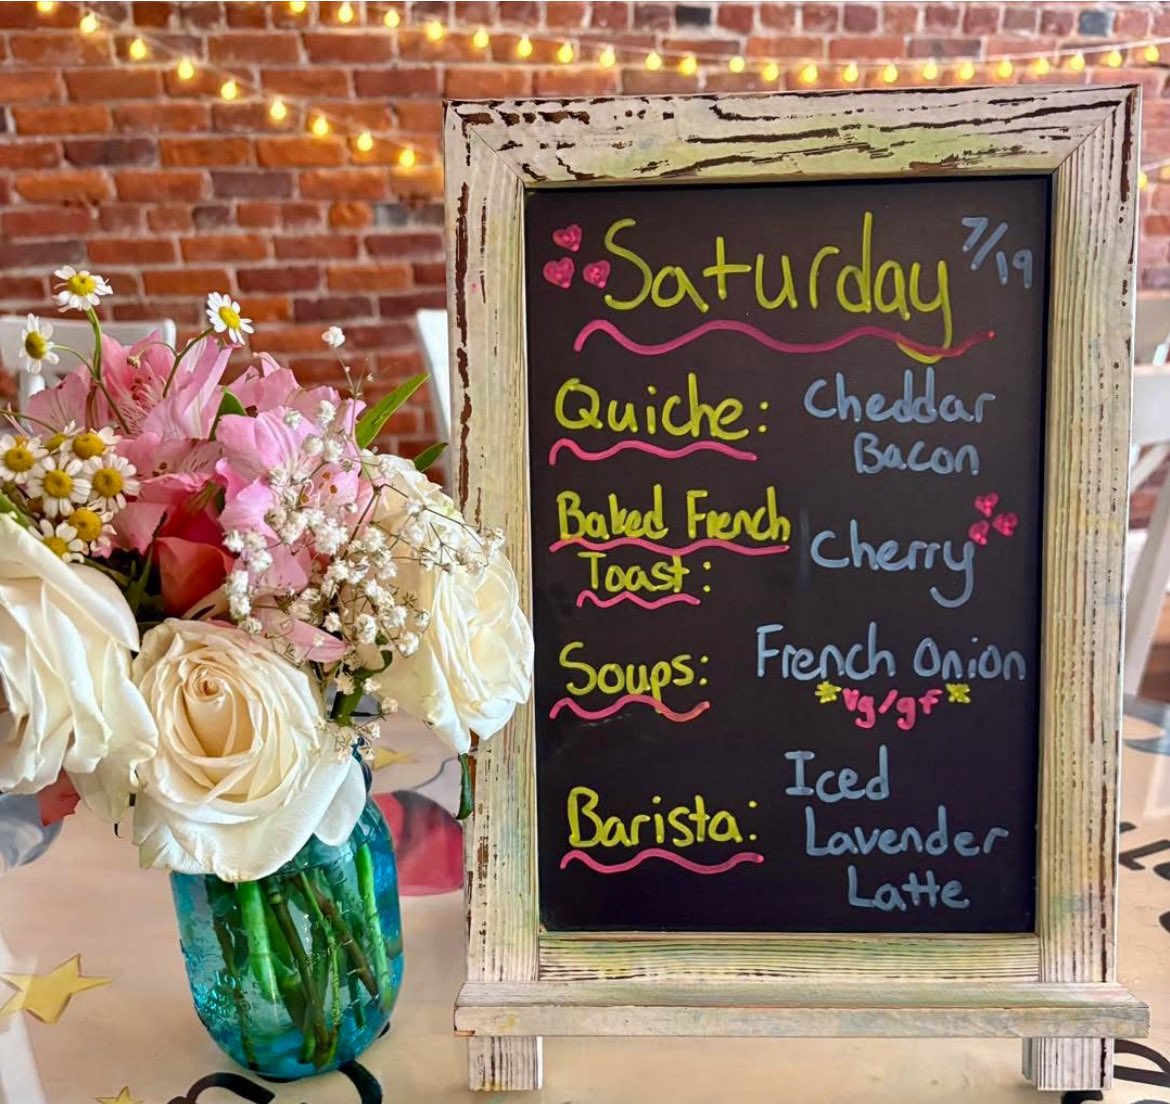 Saturday 7/19
Quiche: Cheddar
Bacon
Baked French
Toast: Cherry
Soups: French Onion
*vg/gf*
Barista: Iced
Lavender
Latte